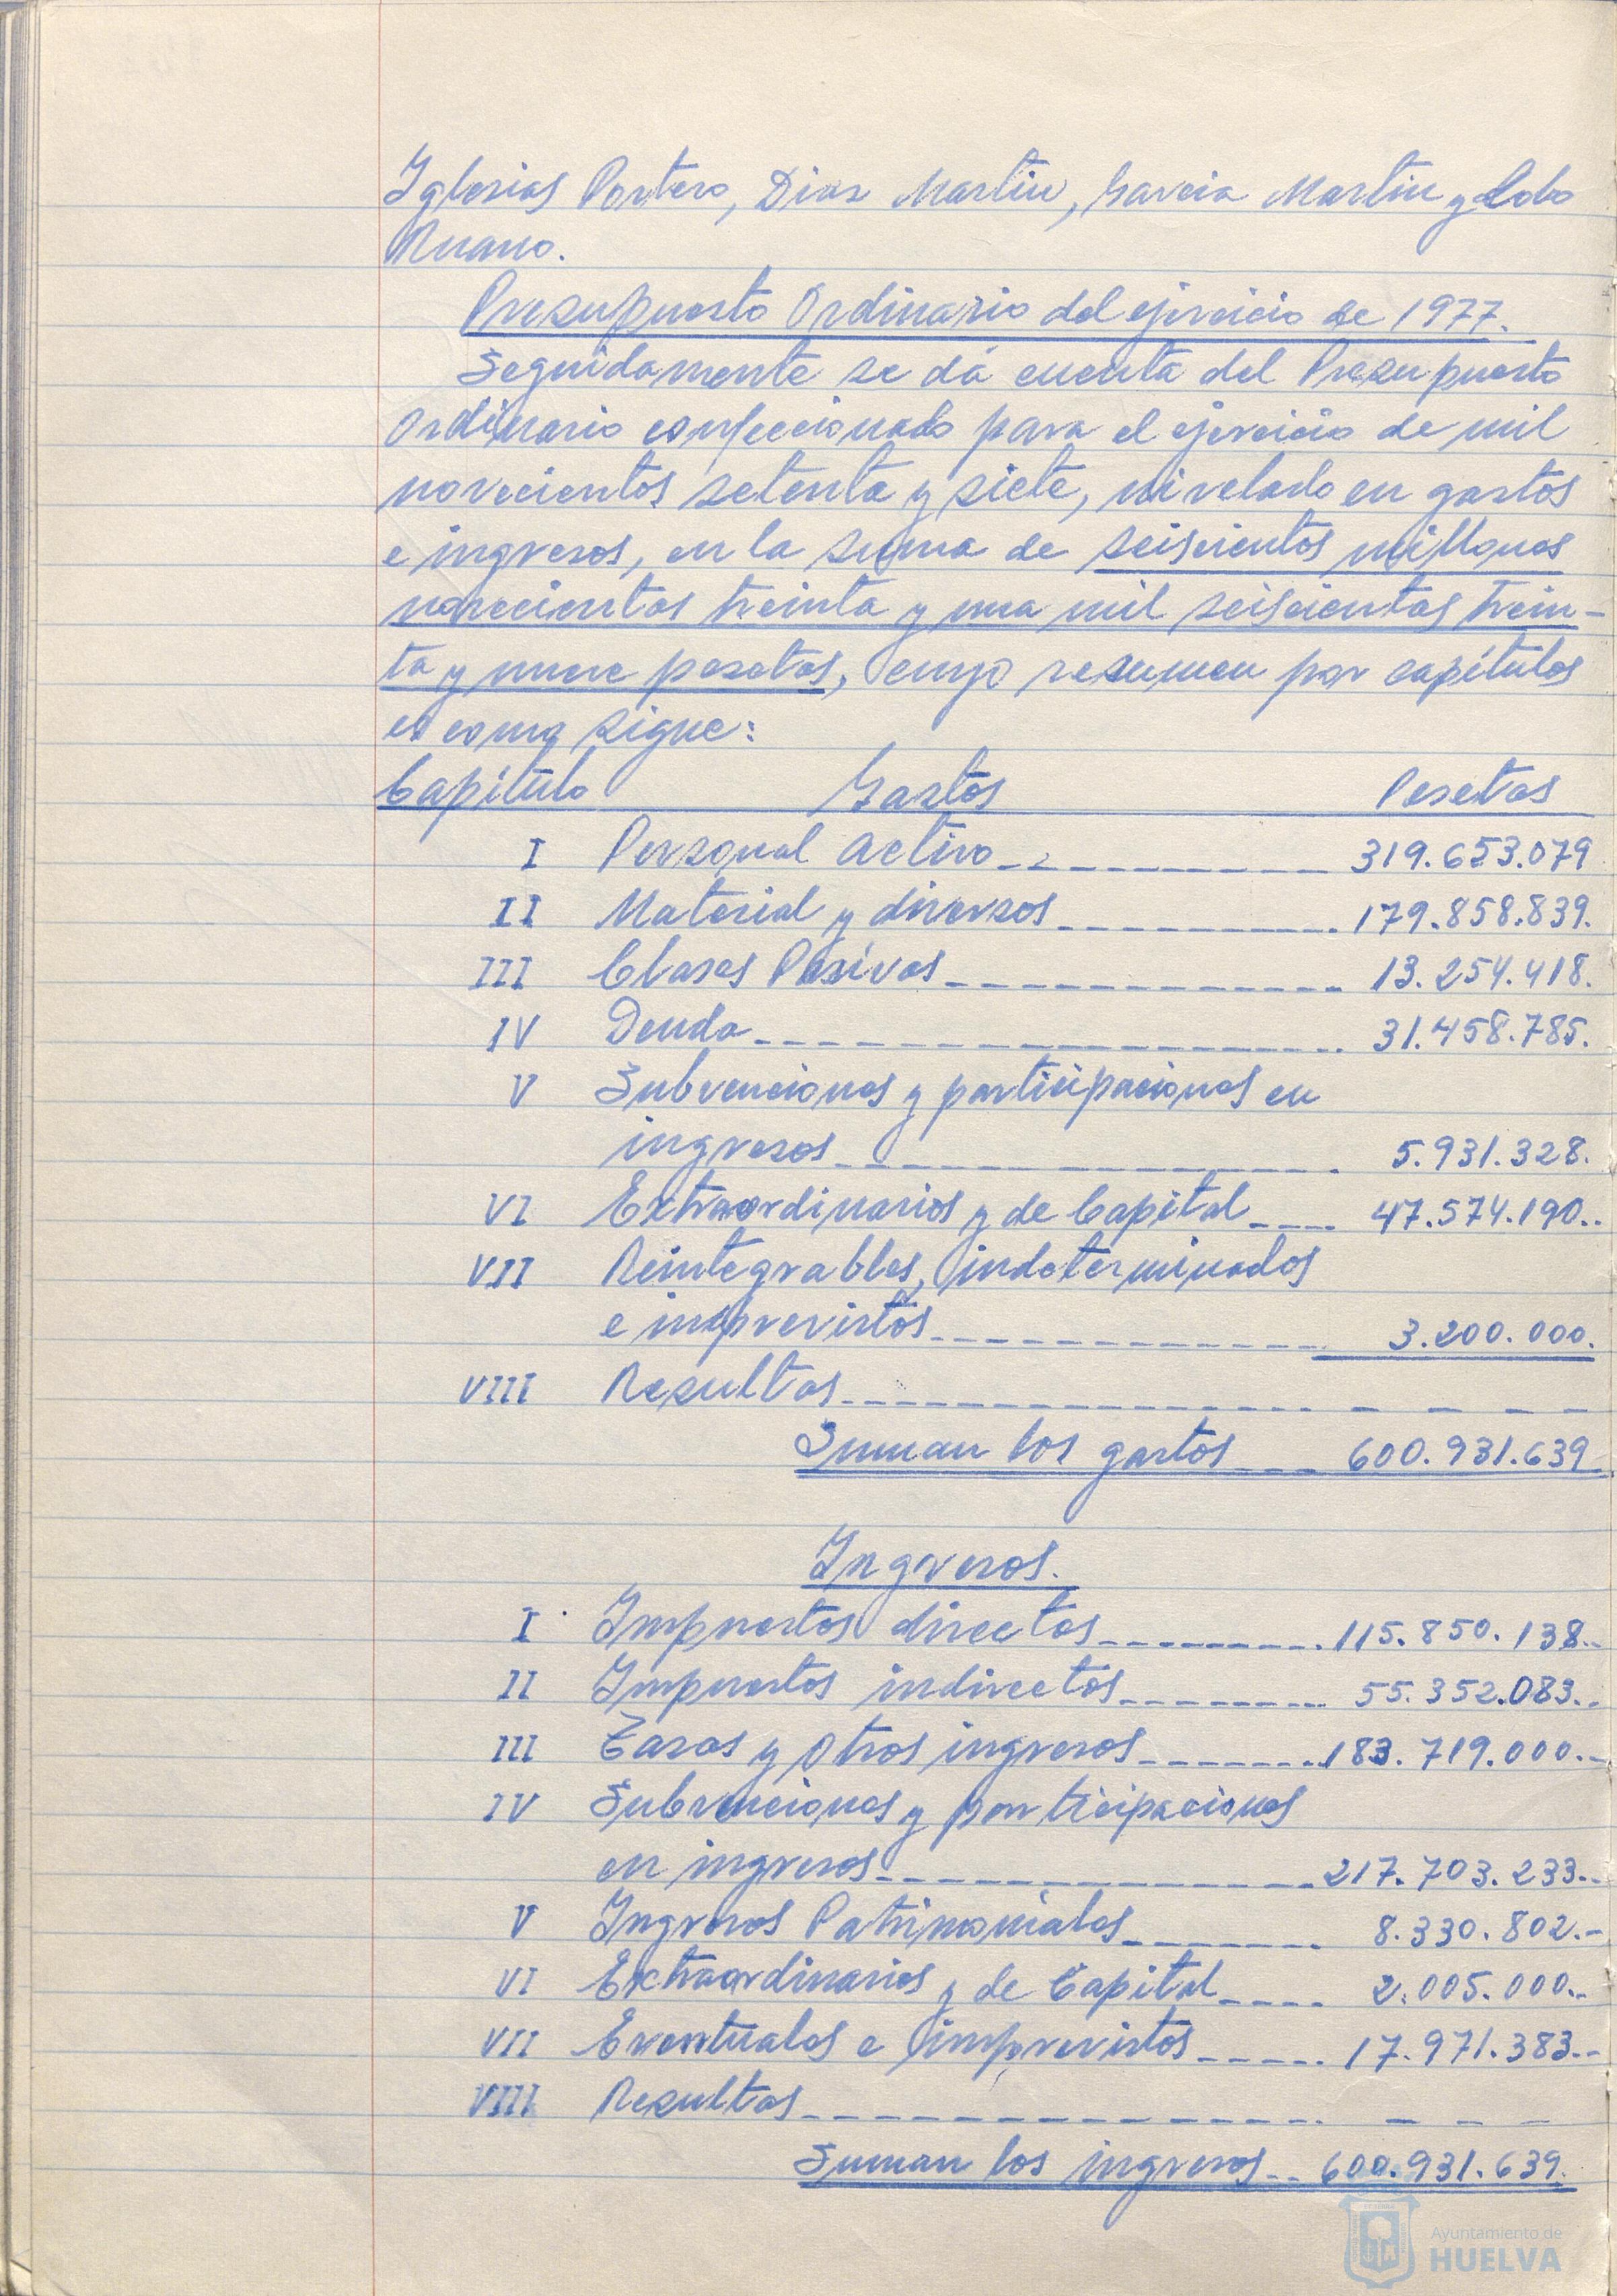 Iglesias Portero, Diaz Martin, Garcia Martin y Lobo
Ruano.
Presupuesto Ordinario del ejercicio de 1977.
Seguidamente se dá cuenta del Presupuesto
Ordinario confeccionado para el ejercicio de mil
novecientos setenta y siete, nivelado en gastos
e ingresos, en la suma de seiscientos millones
novecientas treinta y una mil seiscientas trein-
ta y nueve pesetas, cuyo resumen por capítulos
es como sigue:
Capítulo Gastos Pesetas
I Personal Activo 319.653.079
II Material y diversos 179.858.839.
III Clases Pasivas 13.254.418.
IV Deuda 31.458.785.
V Subvenciones y participaciones en
ingresos 5.931.328.
VI Extraordinarios y de Capital 47.574.190..
VII Reintegrables, indeterminados
e imprevistos 3.200.000.
VIII Resultas - - - -
Suman los gastos 600.931.639
Ingresos.
I Impuestos directos 115.850.138.-
II Impuestos indirectos 55.352.083.-
III Tasas y Otros ingresos 183.719.000.-
IV Subvenciones y participaciones
en ingresos 217.703.233.-
V Ingresos Patrimoniales 8.330.802.-
VI Extraordinarios y de Capital 2.005.000.-
VII Eventuales e imprevistos 17.971.383.-
VIII Resultas - - - -
Suman los ingresos 600.931.639.
Ayuntamiento de
HUELVA